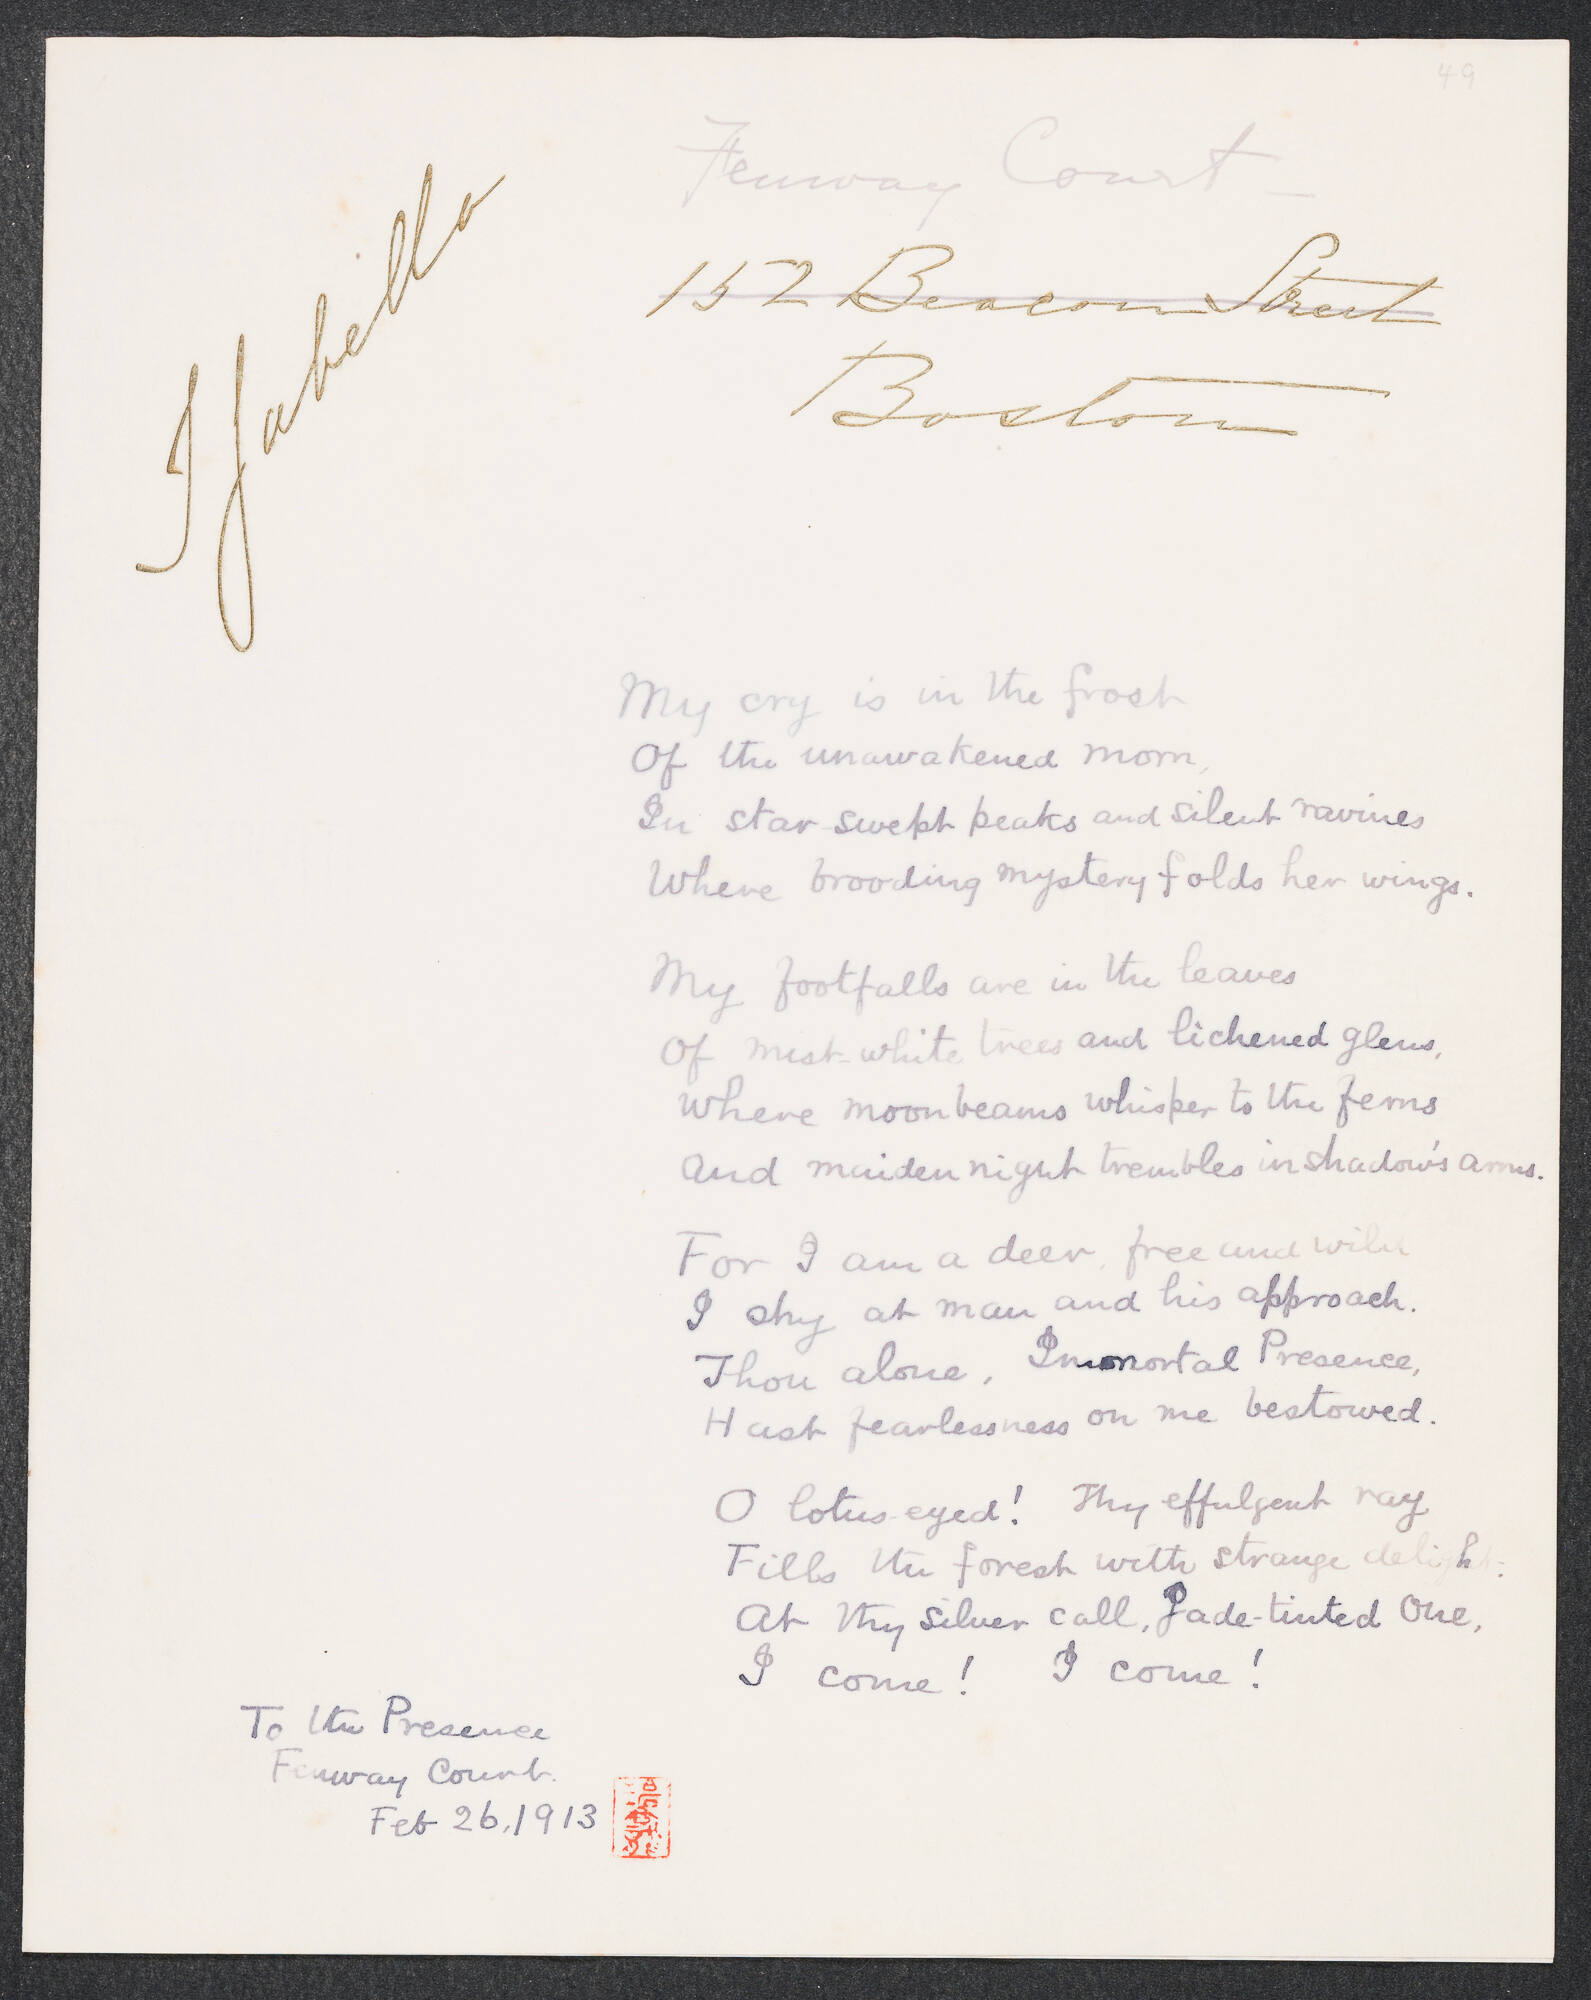 49
Isabella
Fenway Court –
152 Beacon Street
Boston
My cry is in the frost
Of the unawakened morn,
In star-swept peaks and silent ravines
Where brooding mystery folds her wings.
My footfalls are in the leaves
Of mist-white trees and lichened glens,
Where moonbeams whisper to the ferns
And maiden night trembles in shadow's arms.
For I am a deer, free and wild
I shy at man and his approach.
Thou alone, Immortal Presence,
Hast fearlessness on me bestowed.
O lotus-eyed! Thy effulgent ray
Fills the forest with strange delight:
At thy silver call, Jade-tinted One,
I come! I come!
To the Presence
Fenway Court.
Feb 26, 1913